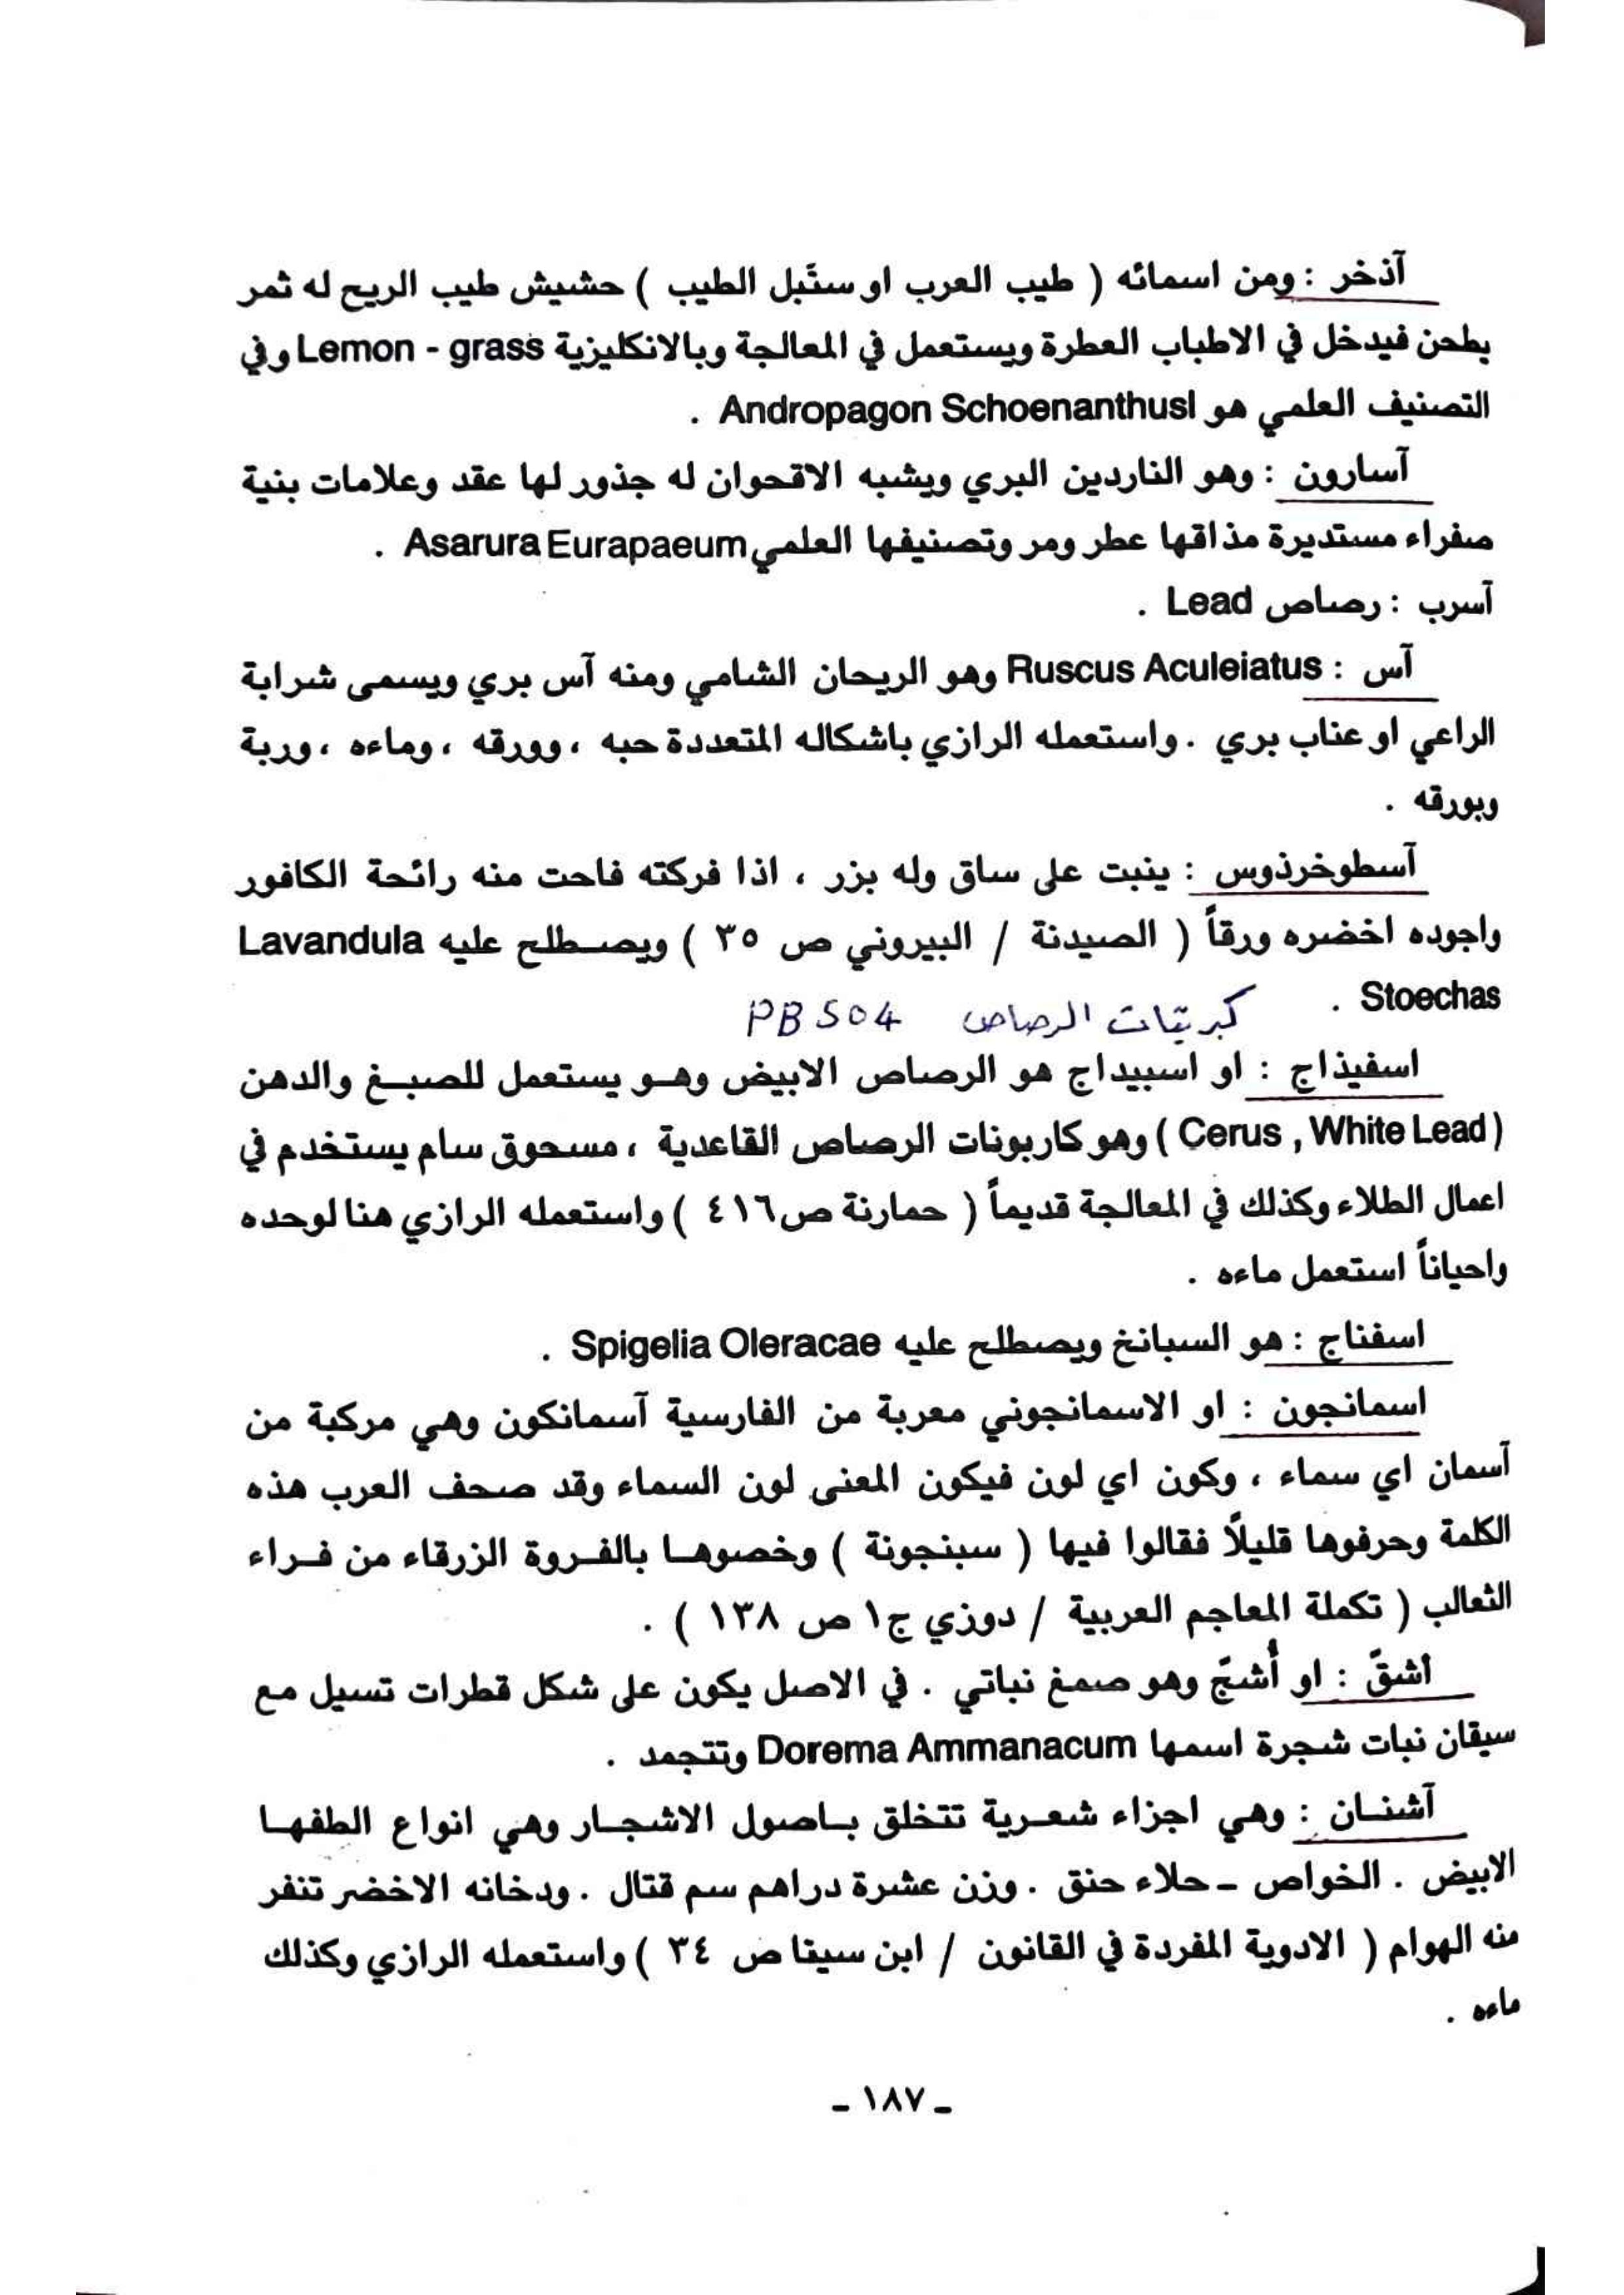 آذخر : ومن اسمائه ( طيب العرب او سنبل الطيب ) حشيش طيب الريح له ثمر
يطحن فيدخل في الاطباب العطرة ويستعمل في المعالجة وبالانكليزية Lemon - grass وفي
التصنيف العلمي هو Andropagon Schoenanthusl .
آسارون : وهو الناردين البري ويشبه الاقحوان له جذور لها عقد وعلامات بنية
صفراء مستديرة مذاقها عطر ومر وتصنيفها العلمي Asarura Eurapaeum .
آسرب : رصاص Lead .
آس : Ruscus Aculeiatus وهو الريحان الشامي ومنه آس بري ويسمى شرابة
الراعي او عناب بري . واستعمله الرازي باشكاله المتعددة حبه ، وورقه ، وماءه ، وربة
وبورقه .
آسطوخرذوس : ينبت على ساق وله بزر ، اذا فركته فاحت منه رائحة الكافور
واجوده اخضره ورقاً ( الصيدنة / البيروني ص ٣٥ ) ويصطلح عليه Lavandula
Stoechas .
كبريتات الرصاص PBSO4
اسفيذاج : او اسبيداج هو الرصاص الابيض وهو يستعمل للصبغ والدهن
( Cerus , White Lead ) وهو كاربونات الرصاص القاعدية ، مسحوق سام يستخدم في
اعمال الطلاء وكذلك في المعالجة قديماً ( حمارنة ص ٤١٦ ) واستعمله الرازي هنا لوحده
واحياناً استعمل ماءه .
اسفناج : هو السبانخ ويصطلح عليه Spigelia Oleracae .
اسمانجون : او الاسمانجوني معربة من الفارسية آسمانكون وهي مركبة من
آسمان اي سماء ، وكون اي لون فيكون المعنى لون السماء وقد صحف العرب هذه
الكلمة وحرفوها قليلاً فقالوا فيها ( سبنجونة ) وخصوها بالفروة الزرقاء من فراء
الثعالب ( تكملة المعاجم العربية / دوزي ج١ ص ١٣٨ ) .
أشقّ : او أُشجّ وهو صمغ نباتي . في الاصل يكون على شكل قطرات تسيل مع
سيقان نبات شجرة اسمها Dorema Ammanacum وتتجمد .
آشنان : وهي اجزاء شعرية تتخلق باصول الاشجار وهي انواع الطفها
الابيض . الخواص ـ حلاء حنق . وزن عشرة دراهم سم قتال . ودخانه الاخضر تنفر
منه الهوام ( الادوية المفردة في القانون / ابن سينا ص ٣٤ ) واستعمله الرازي وكذلك
ماءه .
ـ ١٨٧ ـ